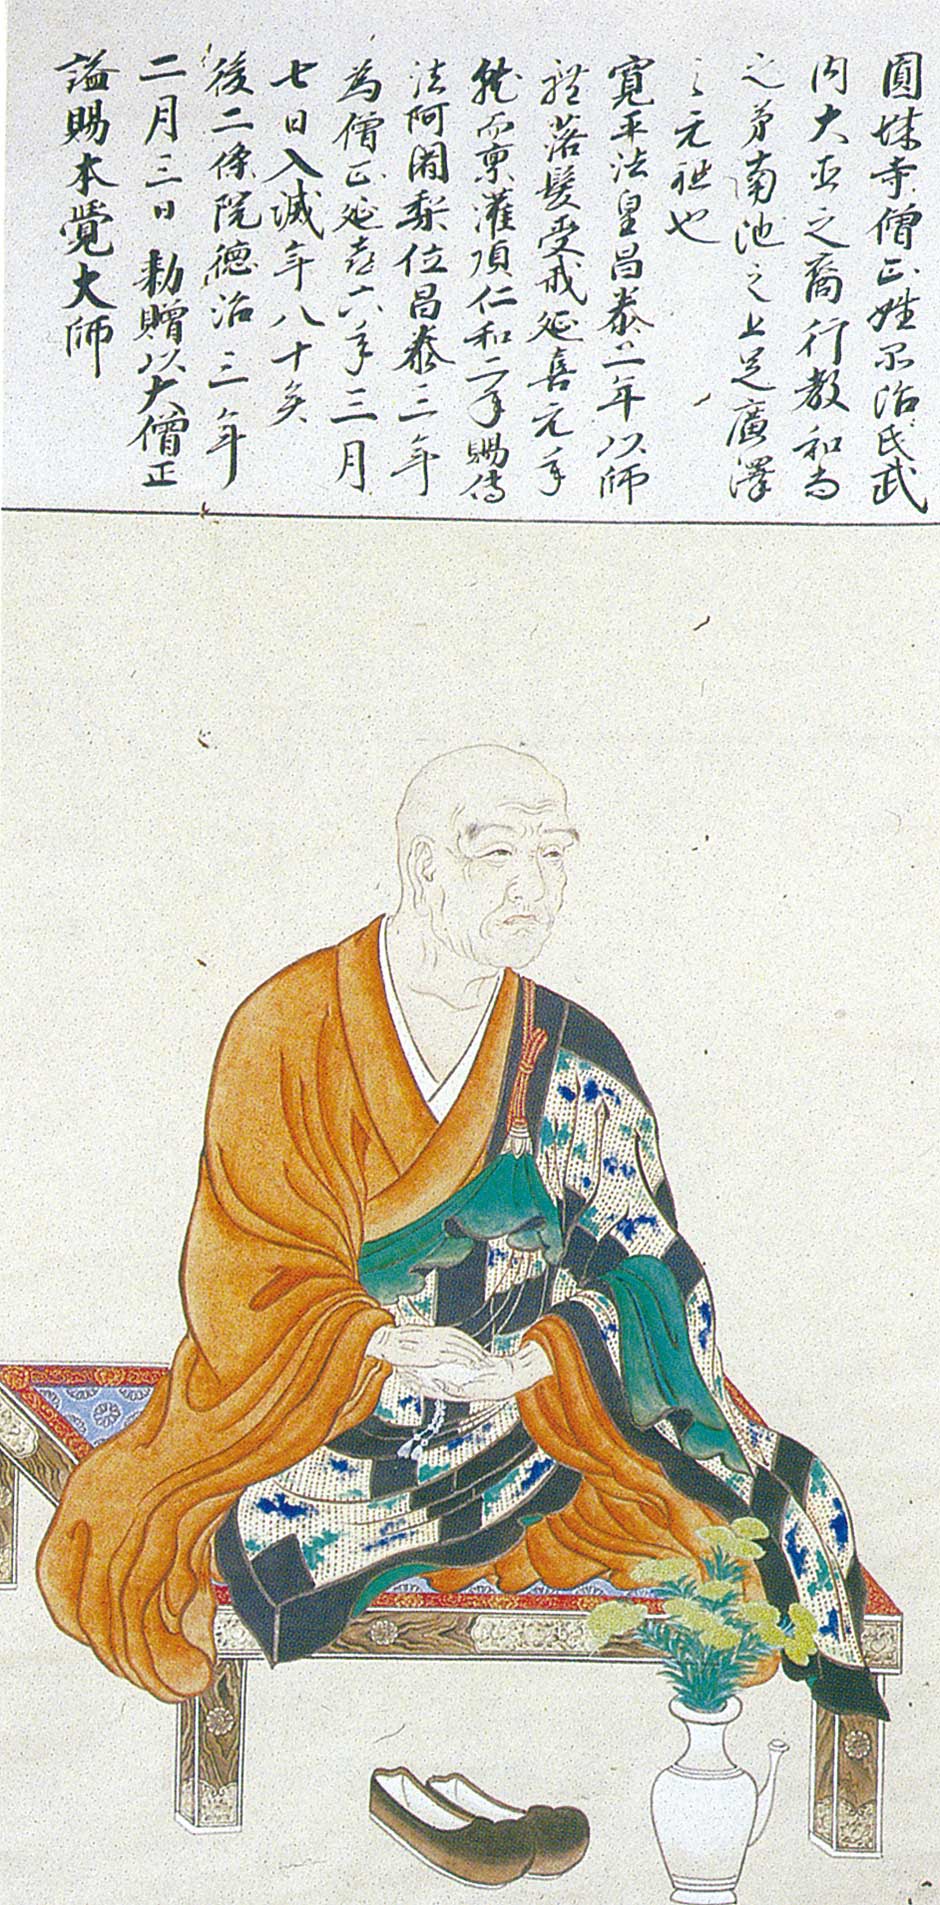 圓城寺僧正姓品治氏武
内大臣之裔行教和尚
之弟南池之上足廣澤
之元祖也
寛平法皇昌泰二年以師
禮落髮受戒延喜元年
就而稟灌頂仁和二年賜傳
法阿闍梨位昌泰三年
為僧正延喜六年三月
七日入滅年八十矣
後二條院德治三年
二月三日 勅贈以大僧正
謚賜本覺大師